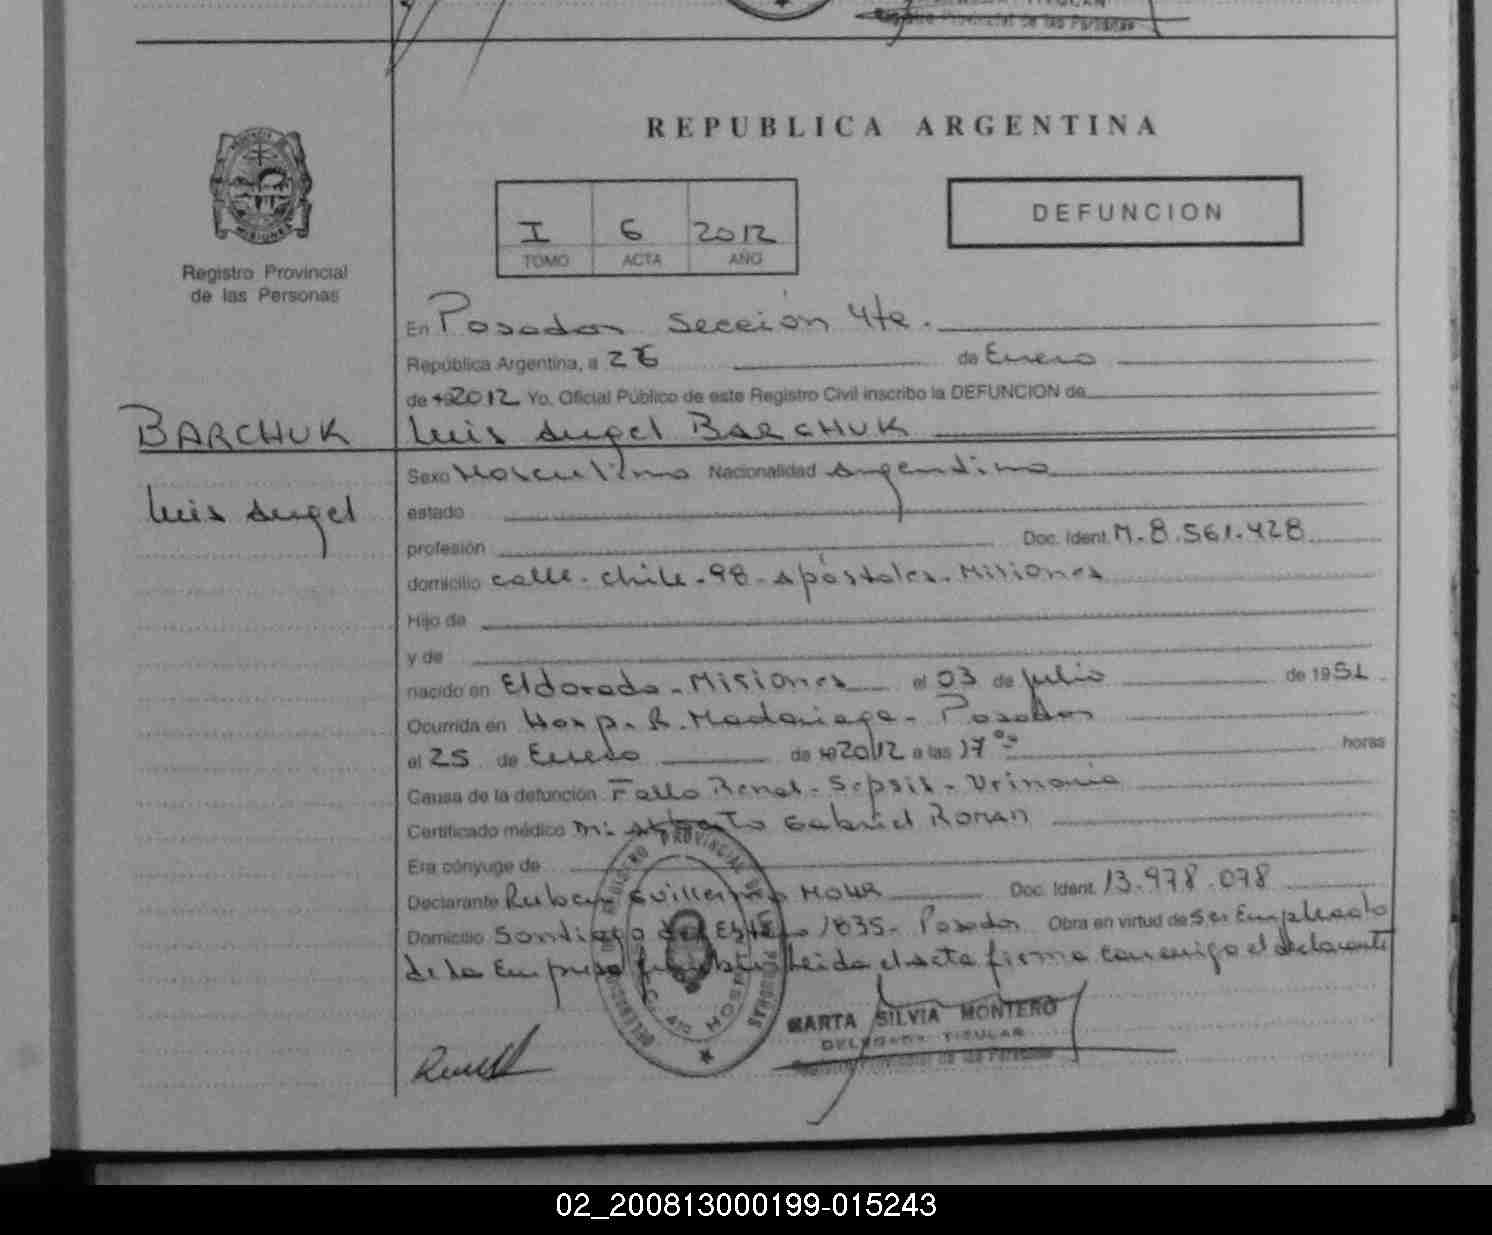 Registro Provincial de las Personas
REPUBLICA ARGENTINA
DEFUNCION
I 6 2012
TOMO ACTA AÑO
MISIONES
Registro Provincial
de las Personas
En Posadas Sección 4ta.
República Argentina, a 26 de Enero
de 2012 Yo, Oficial Público de este Registro Civil inscribo la DEFUNCION de
BARCHUK
Luis Angel BARCHUK
Luis Angel
Sexo Masculino Nacionalidad Argentina
estado
profesión Doc. Ident. M. 8.561.428
domicilio calle-chile-98-Apóstoles-Misiones
Hijo de
y de
nacido en Eldorado-Misiones el 03 de Julio de 1951
Ocurrida en Hosp. R. Madariaga-Posadas
el 25 de Enero de 2012 a las 17 horas
Causa de la defunción Fallo Renal-Sepsis-Urinaria
Certificado médico Gabriel Roman
Era cónyuge de
Declarante Ruben Guillermo Doc. Ident. 13.978.078
Domicilio Santiago del Estero 1835-Posadas Obra en virtud de Ser Empleado
de la Empresa leida el acta firma conmigo el declarante
REGISTRO PROVINCIAL DE LAS PERSONAS
MARTA SILVIA MONTERO
DELEGADA TITULAR
Registro Provincial de las Personas
02_200813000199-015243